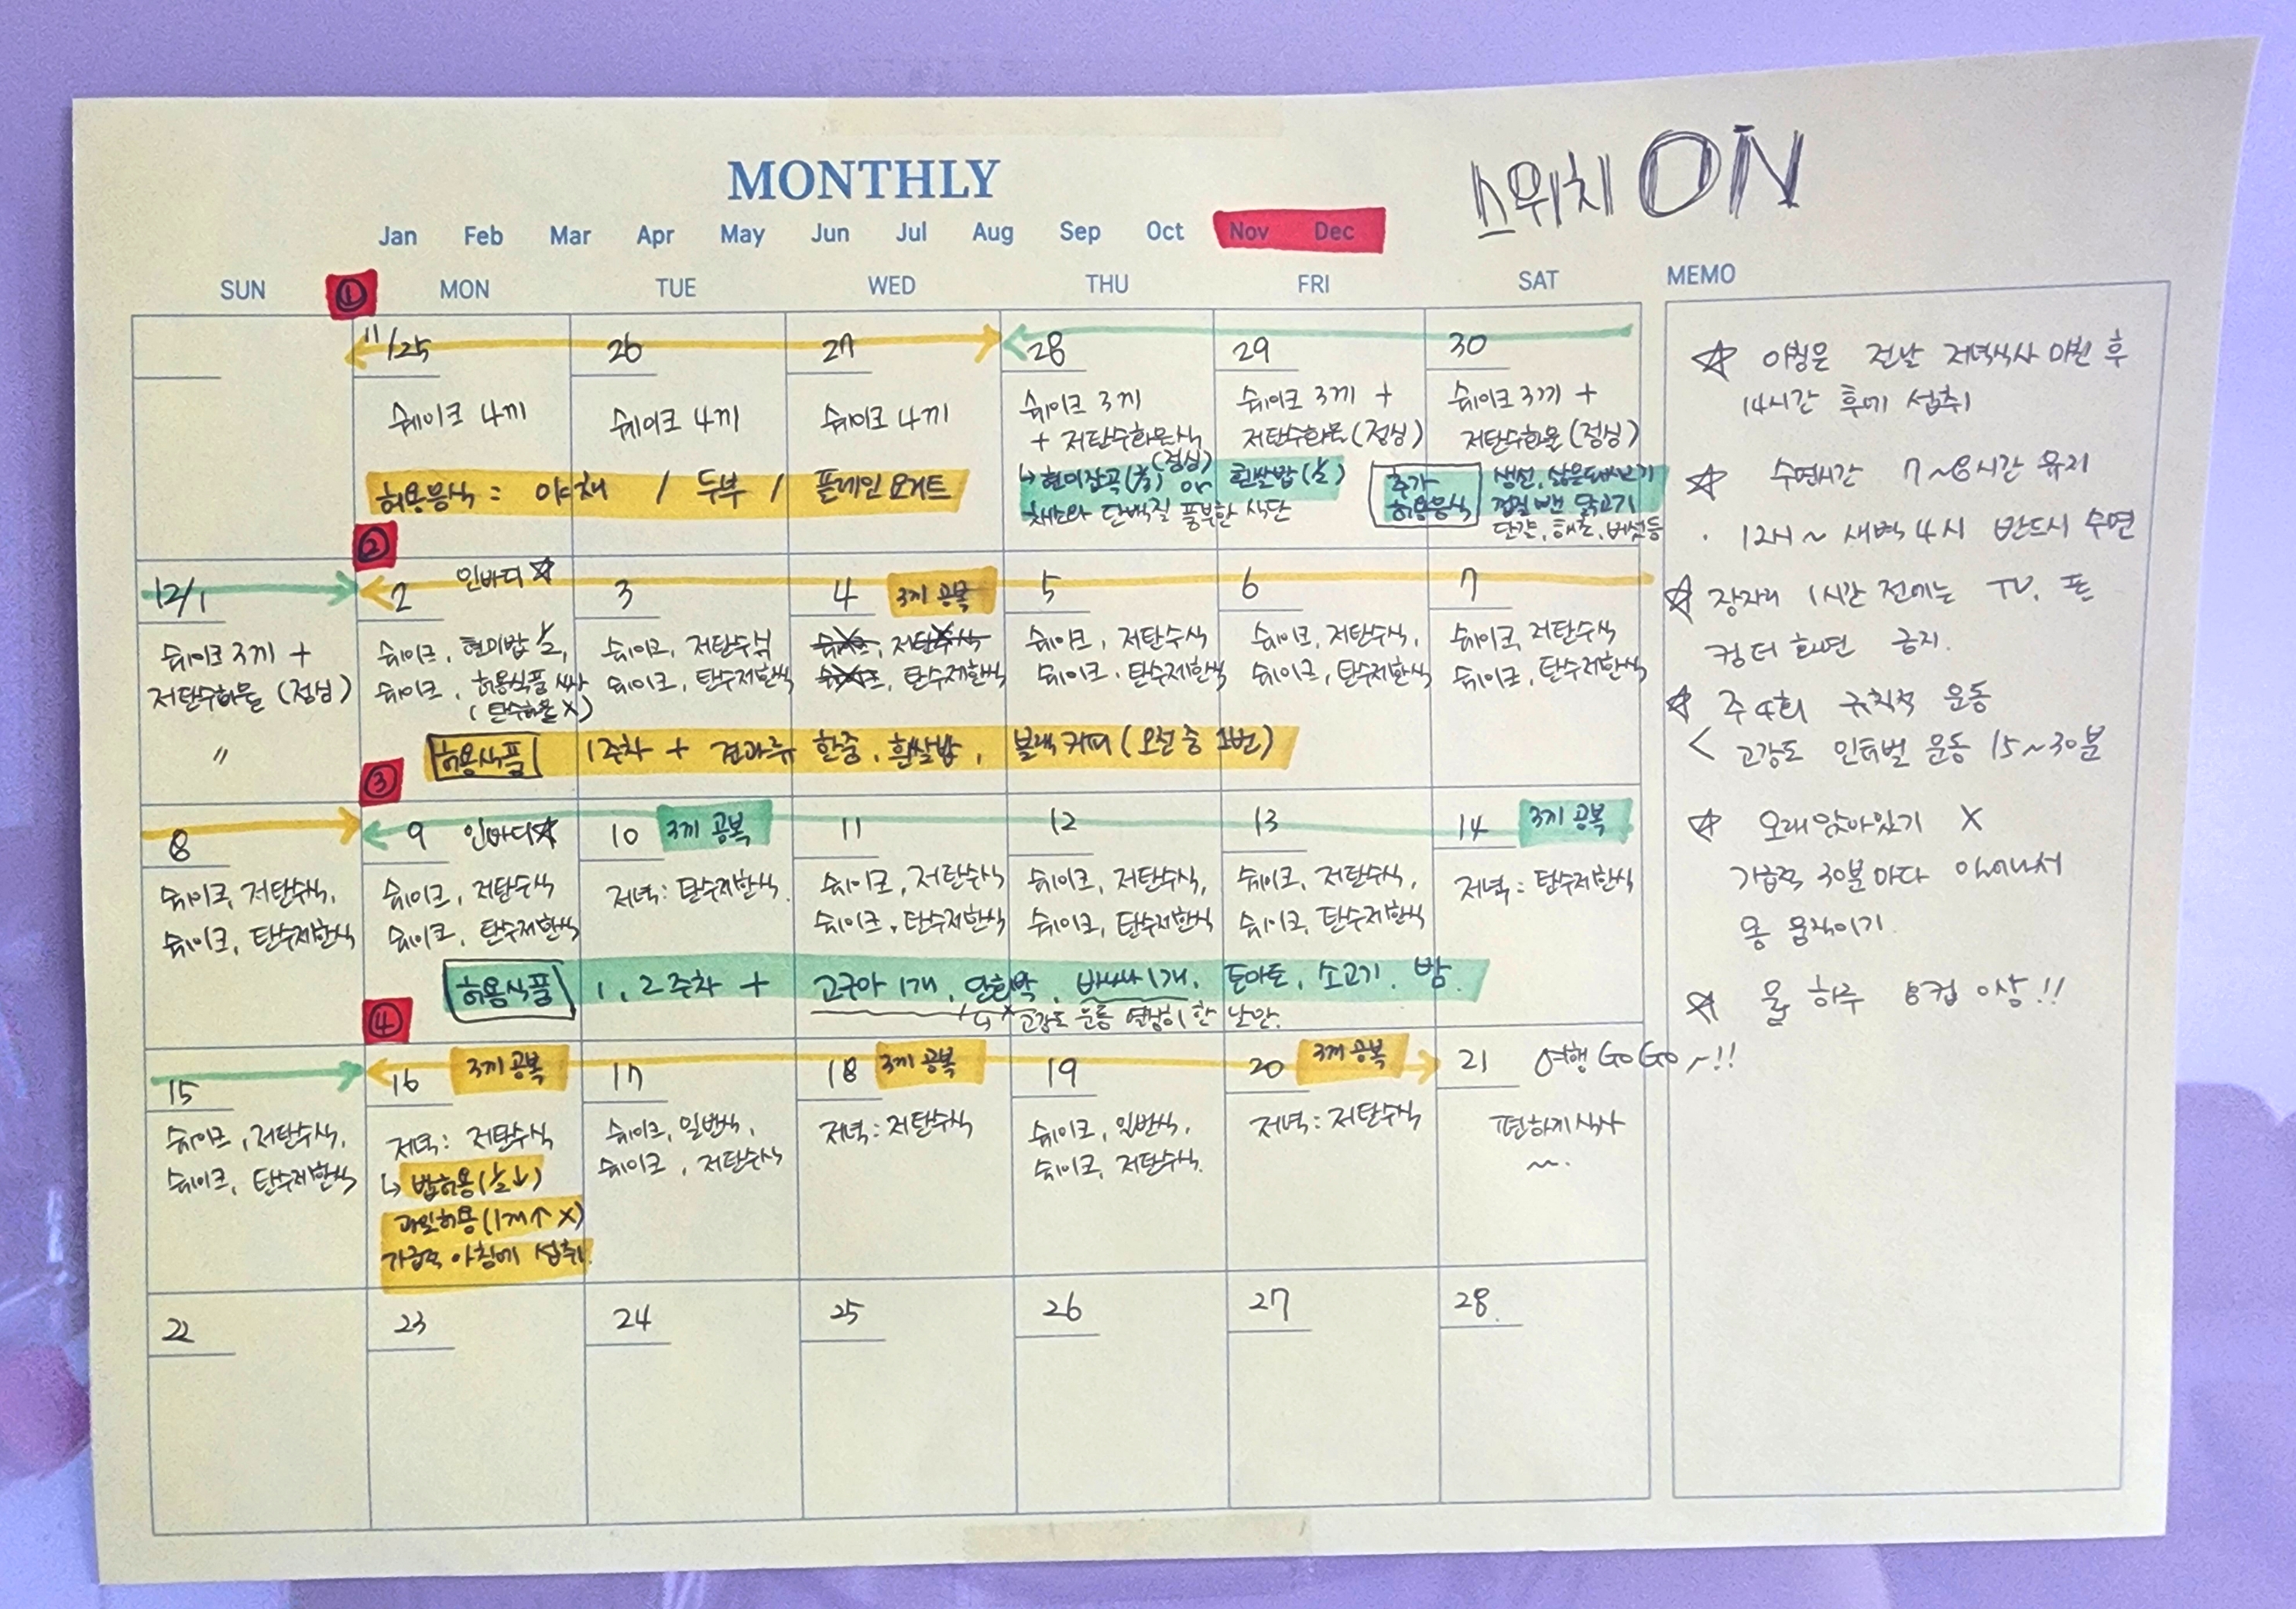 스위치 ON
MONTHLY
Jan Feb Mar Apr May Jun Jul Aug Sep Oct Nov Dec
SUN ① MON TUE WED THU FRI SAT MEMO
11/25
쉐이크 4끼
26
쉐이크 4끼
27
쉐이크 4끼
허용음식 = 야채 / 두부 / 플레인 요거트
28
쉐이크 3끼
+ 저탄수화물식
(점심)
29
쉐이크 3끼 +
저탄수화물 (점심)
30
쉐이크 3끼 +
저탄수화물 (점심)
↳ 현미잡곡 or 흰쌀밥(½)
채소와 단백질 풍부한 식단
추가
허용음식
생선, 삶은돼지고기
껍질 뺀 닭고기
단걀, 해초, 버섯등
②
12/1
쉐이크 3끼 +
저탄수화물 (점심)
〃
2 인바디☆
쉐이크, 현미밥 ½,
쉐이크, 허용식품
(탄수화물X)
3
쉐이크, 저탄수식
쉐이크, 탄수제한식
4 3끼 공복
쉐이크, 저탄수식
쉐이크, 탄수제한식
5
쉐이크, 저탄수식
쉐이크, 탄수제한식
6
쉐이크, 저탄수식,
쉐이크, 탄수제한식
7
쉐이크, 저탄수식
쉐이크, 탄수제한식
허용식품 1주차 + 견과류 한줌, 흰쌀밥, 블랙커피 (오전 중 1번)
③
8
쉐이크, 저탄수식,
쉐이크, 탄수제한식
9 인바디☆
쉐이크, 저탄수식
쉐이크, 탄수제한식
10 3끼 공복
저녁: 탄수제한식.
11
쉐이크, 저탄수식
쉐이크, 탄수제한식
12
쉐이크, 저탄수식,
쉐이크, 탄수제한식
13
쉐이크, 저탄수식,
쉐이크, 탄수제한식
14 3끼 공복
저녁: 탄수제한식
허용식품 1, 2주차 + 고구마 1개, 단호박, 바나나 1개, 토마토, 소고기, 밤
↳ 고강도 운동 열심히 한 날만.
④
15
쉐이크, 저탄수식,
쉐이크, 탄수제한식
16 3끼 공복
저녁: 저탄수식
↳ 밥허용(½↓)
과일허용(1개↑ X)
가급적 아침에 섭취.
17
쉐이크, 일반식,
쉐이크, 저탄수식
18 3끼 공복
저녁: 저탄수식
19
쉐이크, 일반식,
쉐이크, 저탄수식.
20 3끼 공복
저녁: 저탄수식
21 여행 GoGo~!!
편하게 식사
~.
22
23
24
25
26
27
28.
☆ 아침은 전날 저녁식사 마친 후
14시간 후에 섭취
☆ 수면시간 7~8시간 유지
· 12시~새벽 4시 반드시 수면
☆ 잠자리 1시간 전에는 TV, 폰
컴터 화면 금지.
☆ 주 4회 규칙적 운동
< 고강도 인터벌 운동 15~30분
☆ 오래 앉아있기 X
가급적 30분마다 일어나서
몸 움직이기.
☆ 물 하루 8컵 이상!!